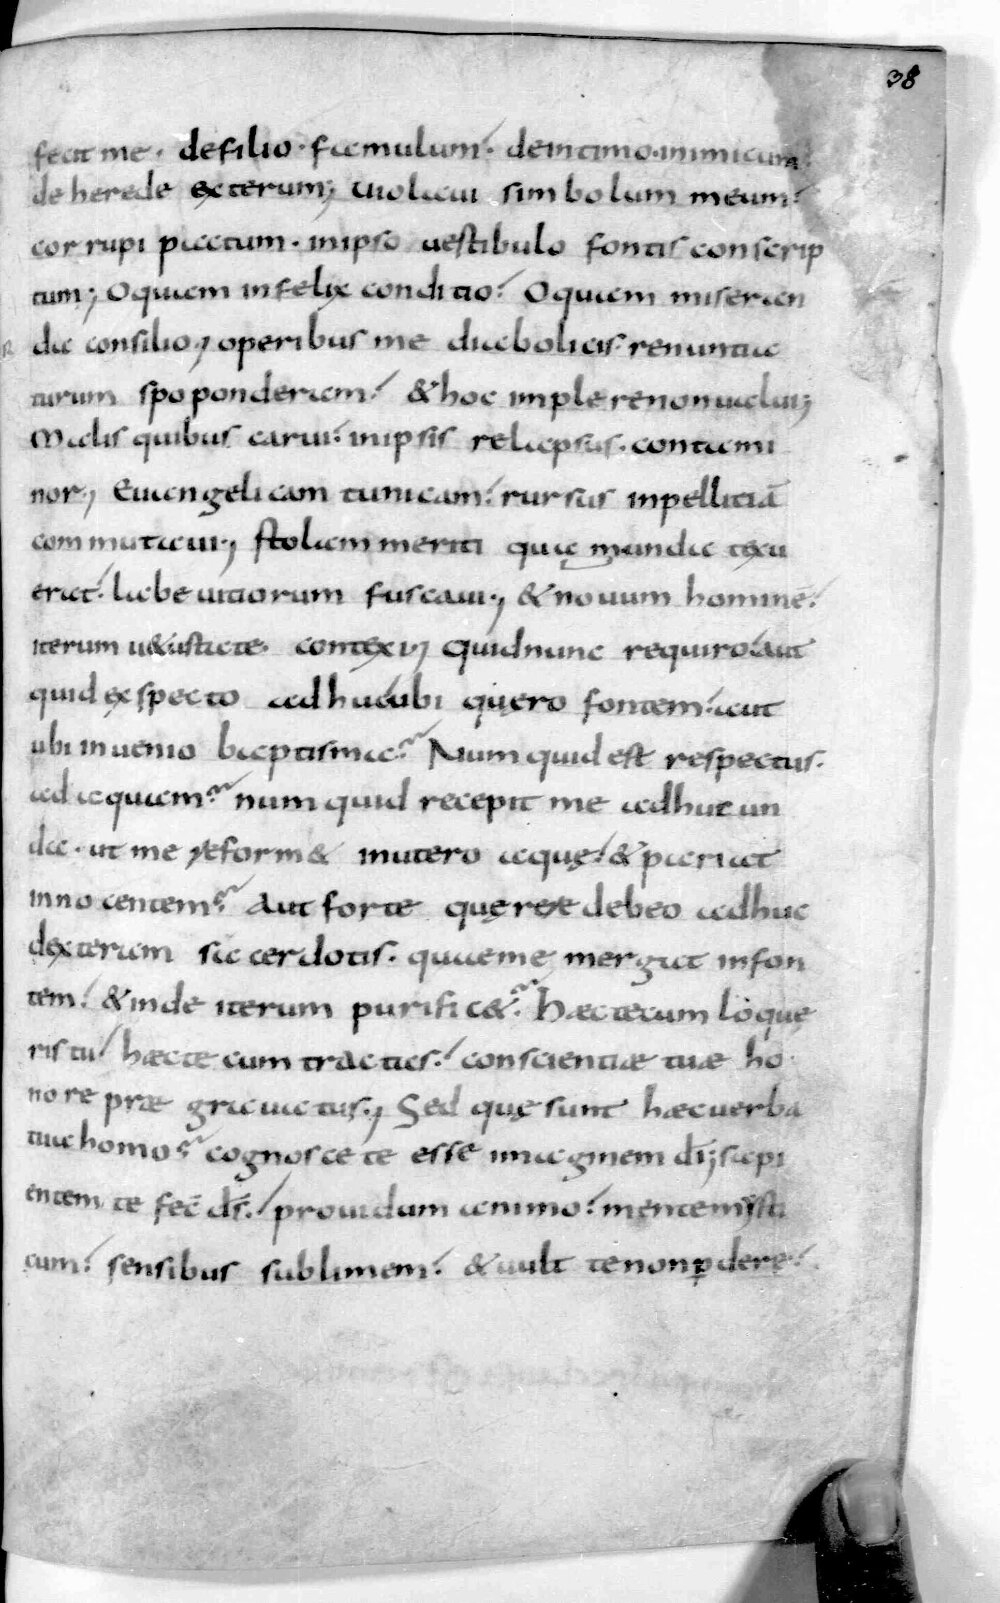 38
fecit me. defilio. famulum. deintimo. inimicum.
de herede exterum; violavi simbolum meum.
corrupi pactum. inipso vestibulo fontis conscrip
tum; O quam infelix conditio. O quam miseran
da consilio; operibus me diabolicis. renuntia
turum spoponderam. & hoc implere nonvalui;
Malis quibus carui. inipsis relapsus. contami
nor; Evangelicam tunicam. rursus inpellitiā
commutavi; stolam meriti quae munda texu
erat. labe vitiorum fuscavi; & novum hominē.
iterum v&ustate. contexi; Quid nunc requiro. aut
quid exspecto adhuc ubi quęro fontem. aut
ubi invenio baptisma. Numquid est respectus.
ad aquam. numquid recepit me adhuc un
da. ut me reform& inutero aquę. & pariat
innocentem. Aut forte quęrere debeo adhuc
dexteram sacerdotis. quaeme mergat infon
tem. & inde iterum purific&. Haec tecum loque
ris tu. haec tecum tractas. conscientiae tuae ho
nore praegravatus; Sed quę sunt haec verba
tua homo. cognosce te esse imaginem dī; sapi
entem te fec̄ ds̄. providum animo. mente iusti
cum. sensibus sublimem. & vult te non ꝑdere.